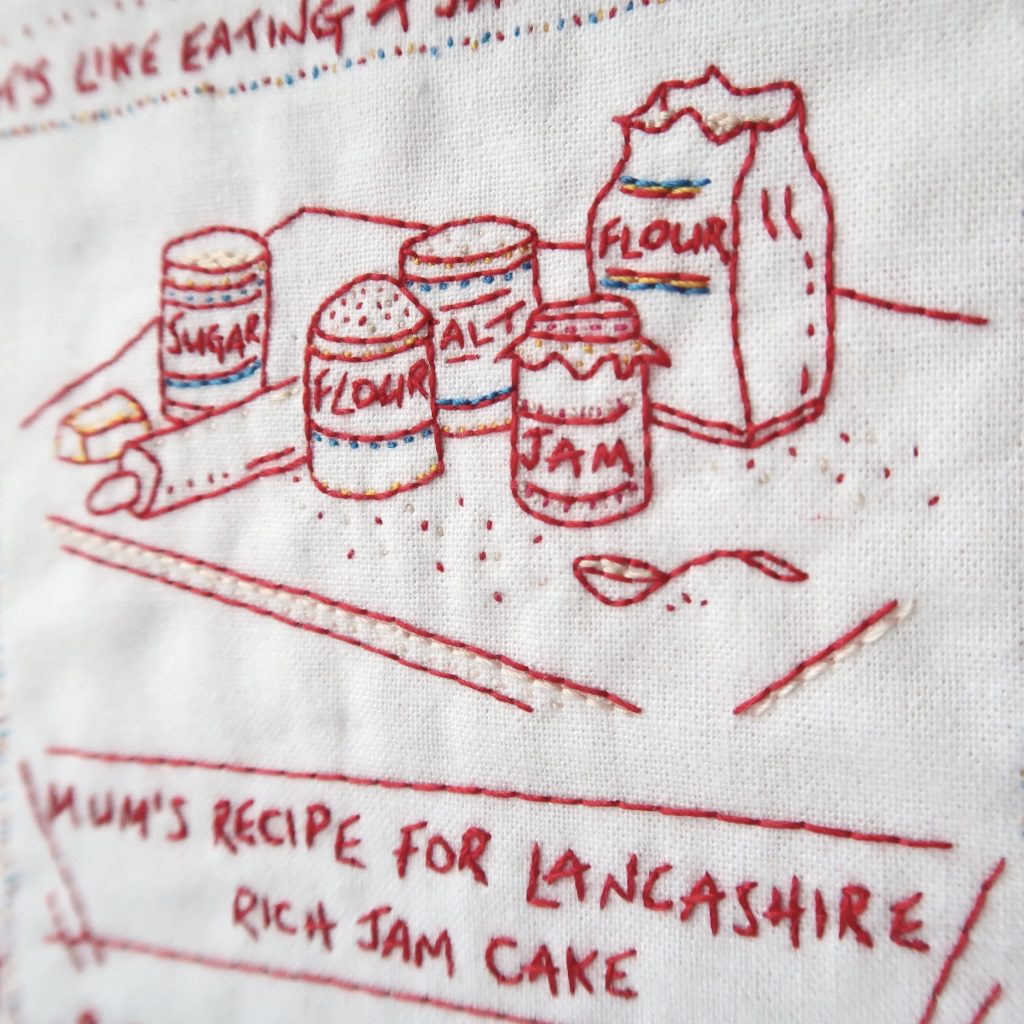 IT'S LIKE EATING A
FLOUR
SUGAR
ALT
FLOUR
JAM
MUM'S RECIPE FOR LANCASHIRE
RICH JAM CAKE